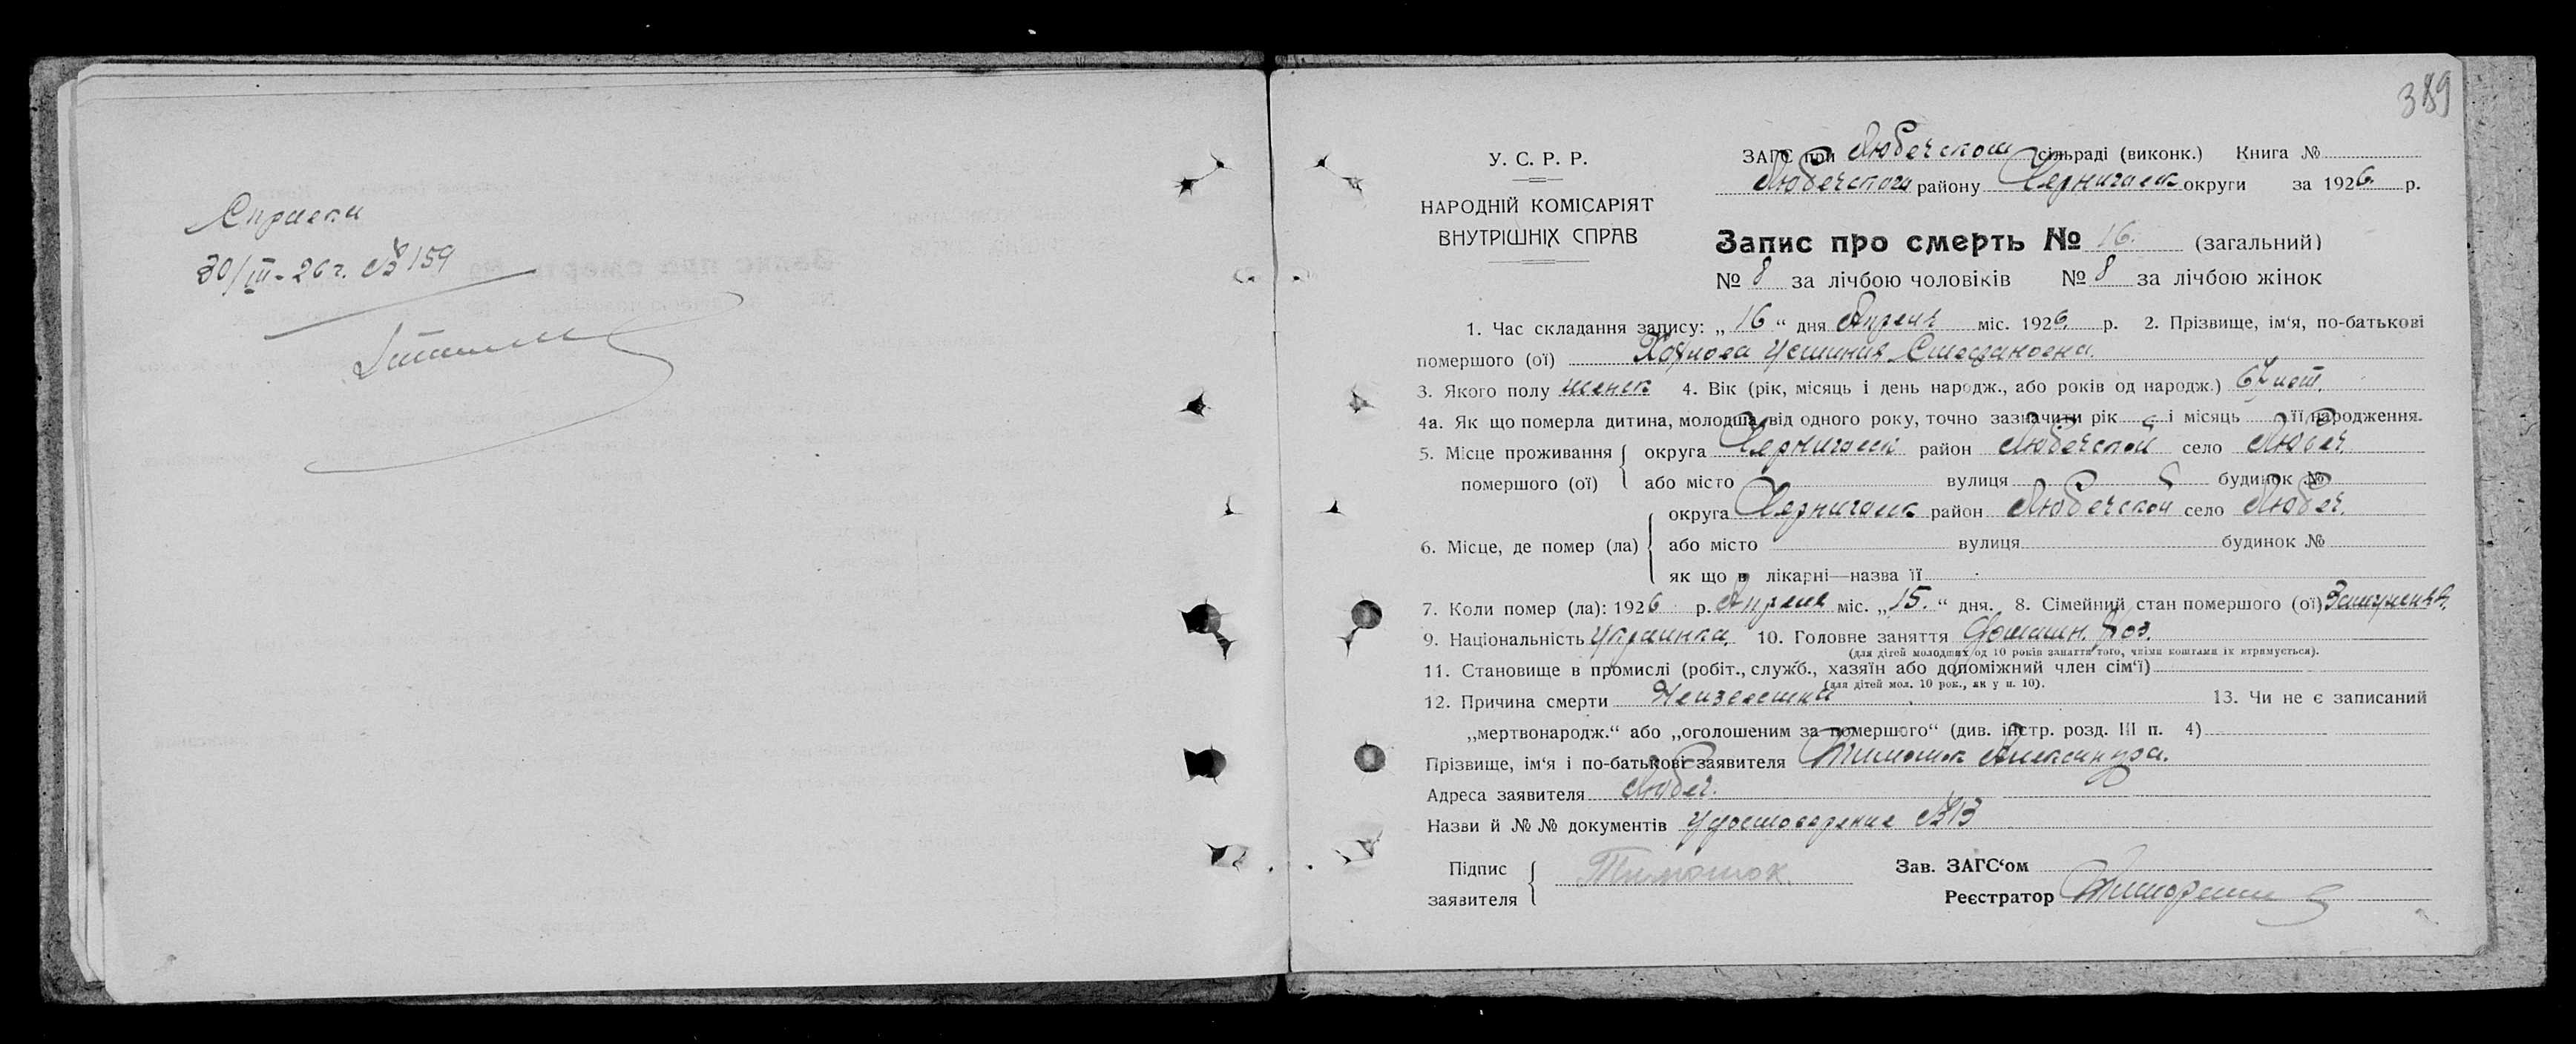 Справки
30/III-26 г. №159
389
У. С. Р. Р.
НАРОДНІЙ КОМІСАРІЯТ
ВНУТРІШНІХ СПРАВ
ЗАГС при Любечском сільраді (виконк.) Книга №
Любечского району Черниговск округи за 1926 р.
Запис про смерть № 16. (загальний)
№ 8 за лічбою чоловіків № 8 за лічбою жінок
1. Час складання запису: „16“ дня Апреля міс. 1926 р. 2. Прізвище, ім‘я, по-батькові
помершого (ої) Устиния Стефановна.
3. Якого полу женск 4. Вік (рік, місяць і день народж., або років од народж.) 67 лет.
4а. Як що померла дитина, молодша від одного року, точно зазначити рік і місяць її народження.
5. Місце проживання помершого (ої) округа Черниговск район Любечский село Любеч.
або місто вулиця будинок №
6. Місце, де помер (ла) округа Черниговск район Любечской село Любеч.
або місто вулиця будинок №
як що в лікарні—назва її
7. Коли помер (ла): 1926 р. Апреля міс. „15.“ дня. 8. Сімейний стан помершого (ої) Замужняя.
9. Національність Украинка. 10. Головне заняття Домашн. хоз.
(для дітей молодших од 10 років заняття того, чиїми коштами їх втримується).
11. Становище в промислі (робіт., служб., хазяїн або допоміжний член сім‘ї)
(для дітей мол. 10 рок., як у п. 10).
12. Причина смерти Неизвестна 13. Чи не є записаний
„мертвонародж.“ або „оголошеним за помершого“ (див. інстр. розд. III п. 4)
Прізвище, ім‘я і по-батькові заявителя Тимошок Александра.
Адреса заявителя Любеч.
Назви й № № документів Удостоверение №13
Підпис заявителя Тимошок Зав. ЗАГС‘ом
Реєстратор